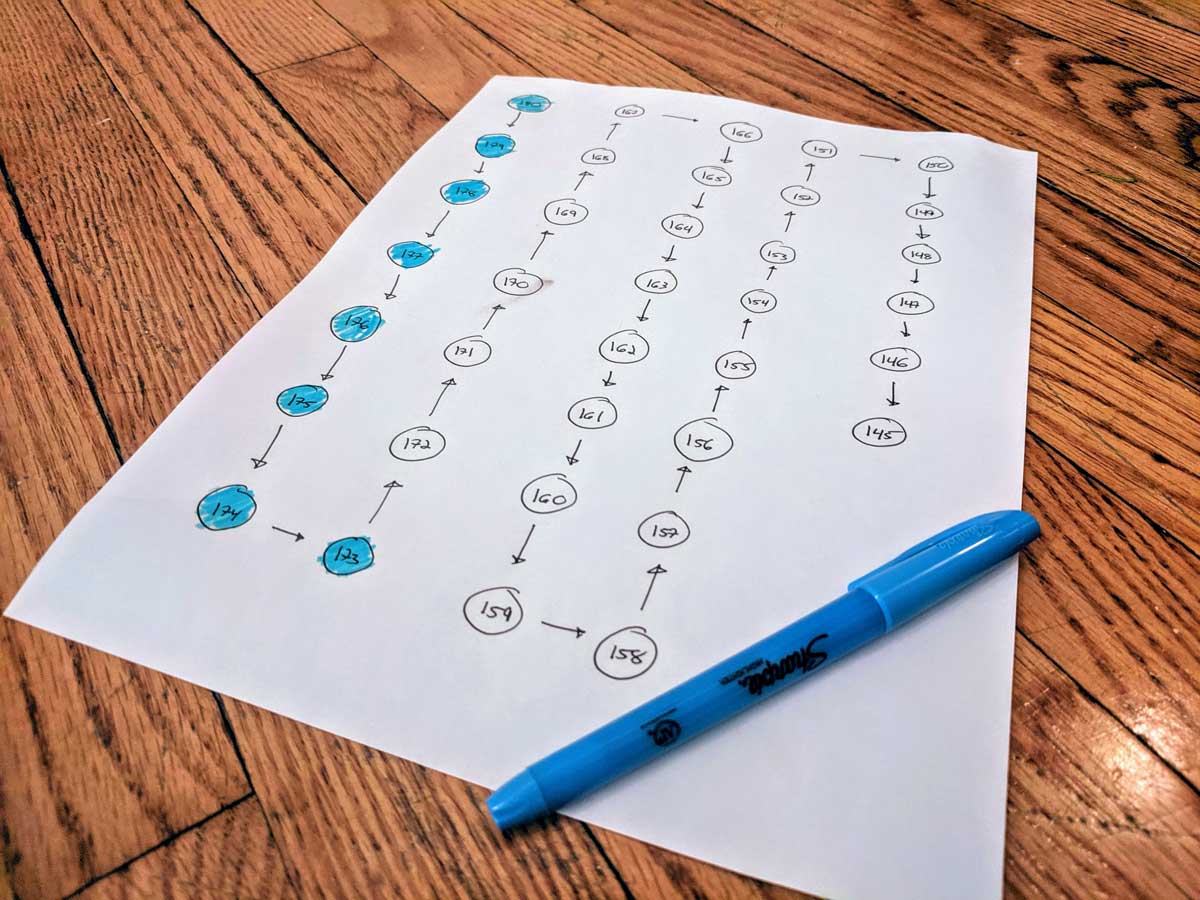 180
179
178
177
176
175
174
173
172
171
170
169
168
167
166
165
164
163
162
161
160
159
158
157
156
155
154
153
152
151
150
149
148
147
146
145
Sharpie
Sharpie
HIGHLIGHTER
AP